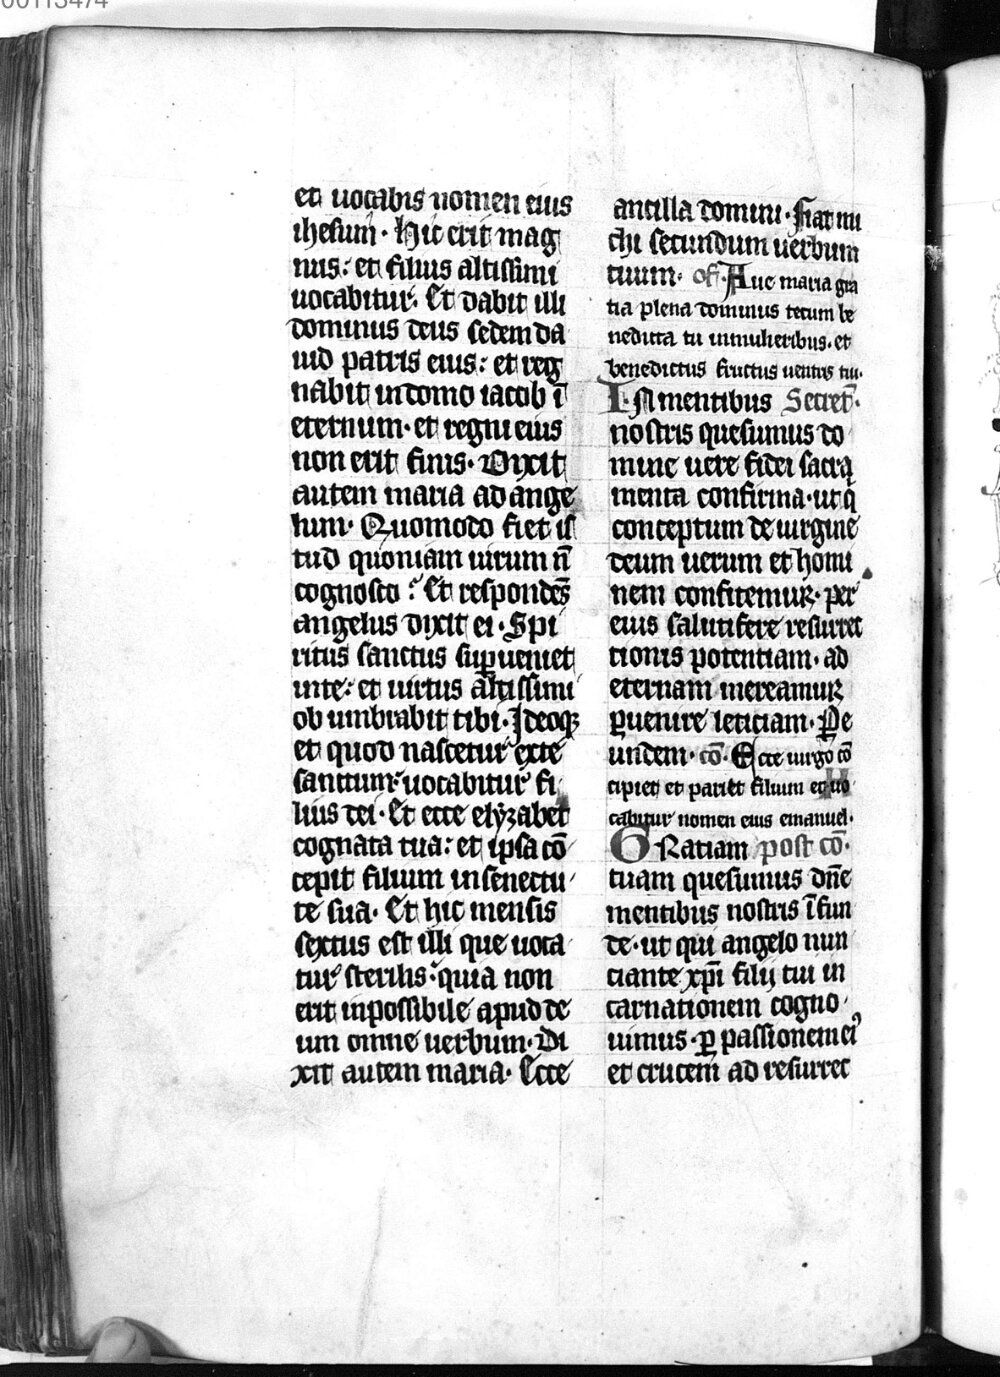 00113474
et uocabis nomen eius
ihesum · Hic erit mag
nus : et filius altissimi
uocabitur . Et dabit illi
dominus deus sedem da
uid patris eius : et reg
nabit in domo iacob ī
eternum · et regni eius
non erit finis · Dixit
autem maria ad ange
lum · Quomodo fiet is
tud quoniam uirum n̄
cognosco ? Et respondēs
angelus dixit ei · Spi
ritus sanctus suꝑueniet
in te : et uirtus altissimi
obumbrabit tibi · Ideoqꝫ
et quod nascetur ex te
sanctum uocabitur fi
lius dei · Et ecce elyzabet
cognata tua : et ipsa cō
cepit filium in senectu
te sua · Et hic mensis
sextus est illi que uoca
tur sterilis : quia non
erit inpossibile apud de
um omne uerbum · Di
xit autem maria · Ecce
ancilla domini · Fiat mi
chi secundum uerbum
tuum · of Aue maria gra
tia plena dominus tecum be
nedicta tu in mulieribus · et
benedictus fructus uentris tui ·
IN mentibus Secret̄ ·
nostris quesumus do
mine uere fidei sacra
menta confirma · ut q̇
conceptum de uirgine
deum uerum et homi
nem confitemur · per
eius salutifere resurrec
tionis potentiam · ad
eternam mereamur
ꝑuenire leticiam · Ꝑ e
undem · cō · Ecce uirgo cō
cipiet et pariet filium et uo
cabitur nomen eius emanuel ·
GRatiam post cō ·
tuam quesumus dn̄e
mentibus nostris īfun
de · ut qui angelo nun
ciante xp̄i filij tui in
carnationem cogno
uimus · ꝑ passionem eiꝰ
et crucem ad resurrec